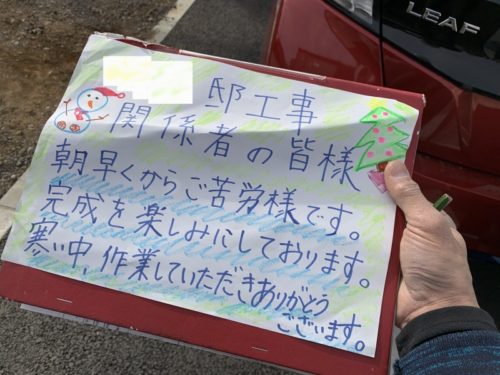 LEAF
邸工事
関係者の皆様
朝早くからご苦労様です。
完成を楽しみにしております。
寒い中、作業していただきありがとう
ございます。